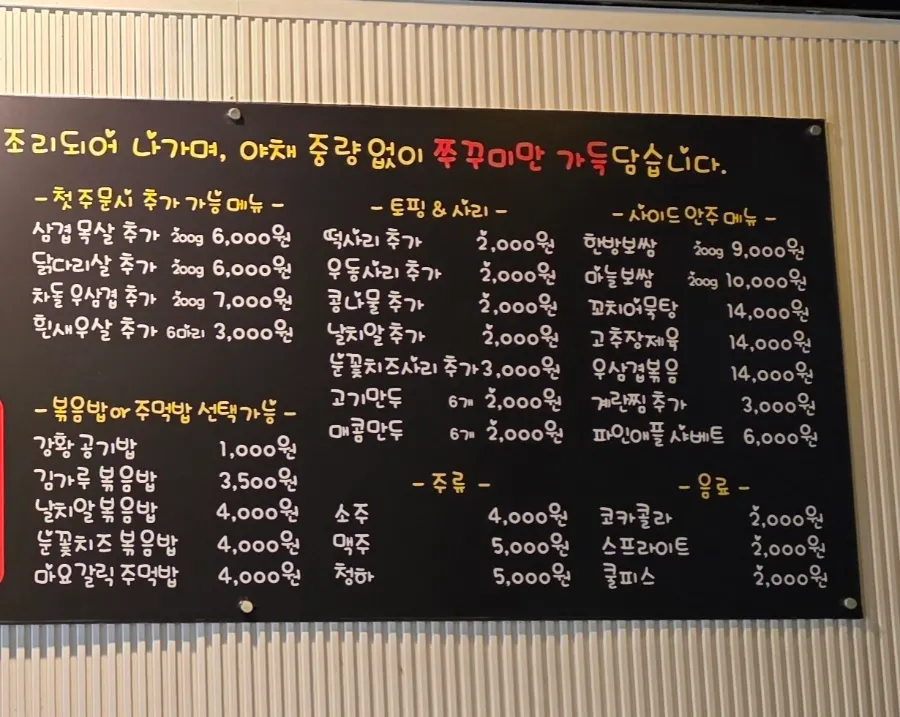 조리되어 나가며, 야채 중량없이 쭈꾸미만 가득담습니다.
- 첫 주문시 추가 가능 메뉴 -
삼겹 목살 추가 200g 6,000원
닭다리살 추가 200g 6,000원
차돌 우삼겹 추가 200g 7,000원
흰새우살 추가 6마리 3,000원
- 볶음밥or 주먹밥 선택가능 -
강황 공기밥 1,000원
김가루 볶음밥 3,500원
날치알 볶음밥 4,000원
눈꽃치즈 볶음밥 4,000원
마요갈릭 주먹밥 4,000원
- 토핑 & 사리 -
떡사리 추가 2,000원
우동사리 추가 2,000원
콩나물 추가 2,000원
날치알 추가 2,000원
눈꽃치즈사리 추가 3,000원
고기만두 6개 2,000원
매콤만두 6개 2,000원
- 주류 -
소주 4,000원
맥주 5,000원
청하 5,000원
- 사이드 안주 메뉴 -
한방보쌈 200g 9,000원
마늘보쌈 200g 10,000원
꼬치어묵탕 14,000원
고추장제육 14,000원
우삼겹볶음 14,000원
계란찜 추가 3,000원
파인애플 샤베트 6,000원
- 음료 -
코카콜라 2,000원
스프라이트 2,000원
쿨피스 2,000원